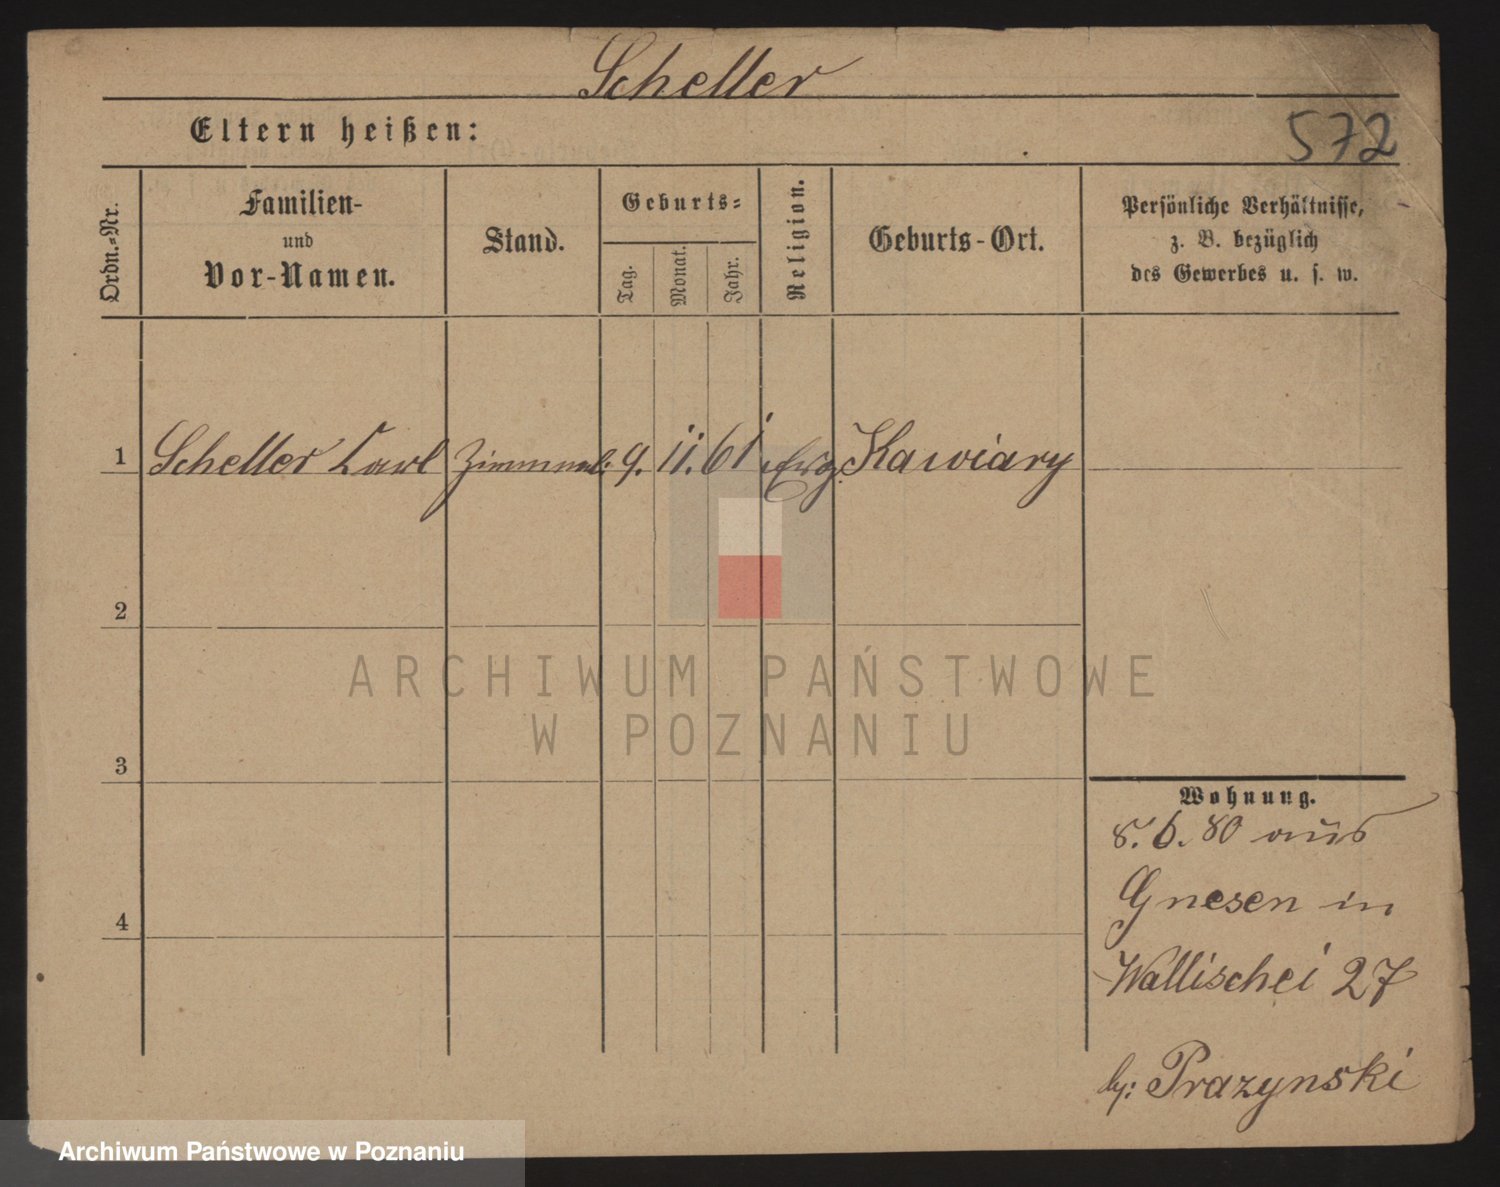 Scheller
Eltern heißen:
572
Ordn.-Nr.
Familien-
und
Vor-Namen.
Stand.
Geburts-
Tag.
Monat.
Jahr.
Religion.
Geburts-Ort.
Persönliche Verhältnisse,
z. B. bezüglich
des Gewerbes u. s. w.
1 Scheller Carl 9. 11. 61 Evg. Kawiary
2
3
4
Wohnung.
8. 6. 80 aus
Gnesen in
Wallischei 27
by: Prazynski
ARCHIWUM PAŃSTWOWE
W POZNANIU
Archiwum Państwowe w Poznaniu